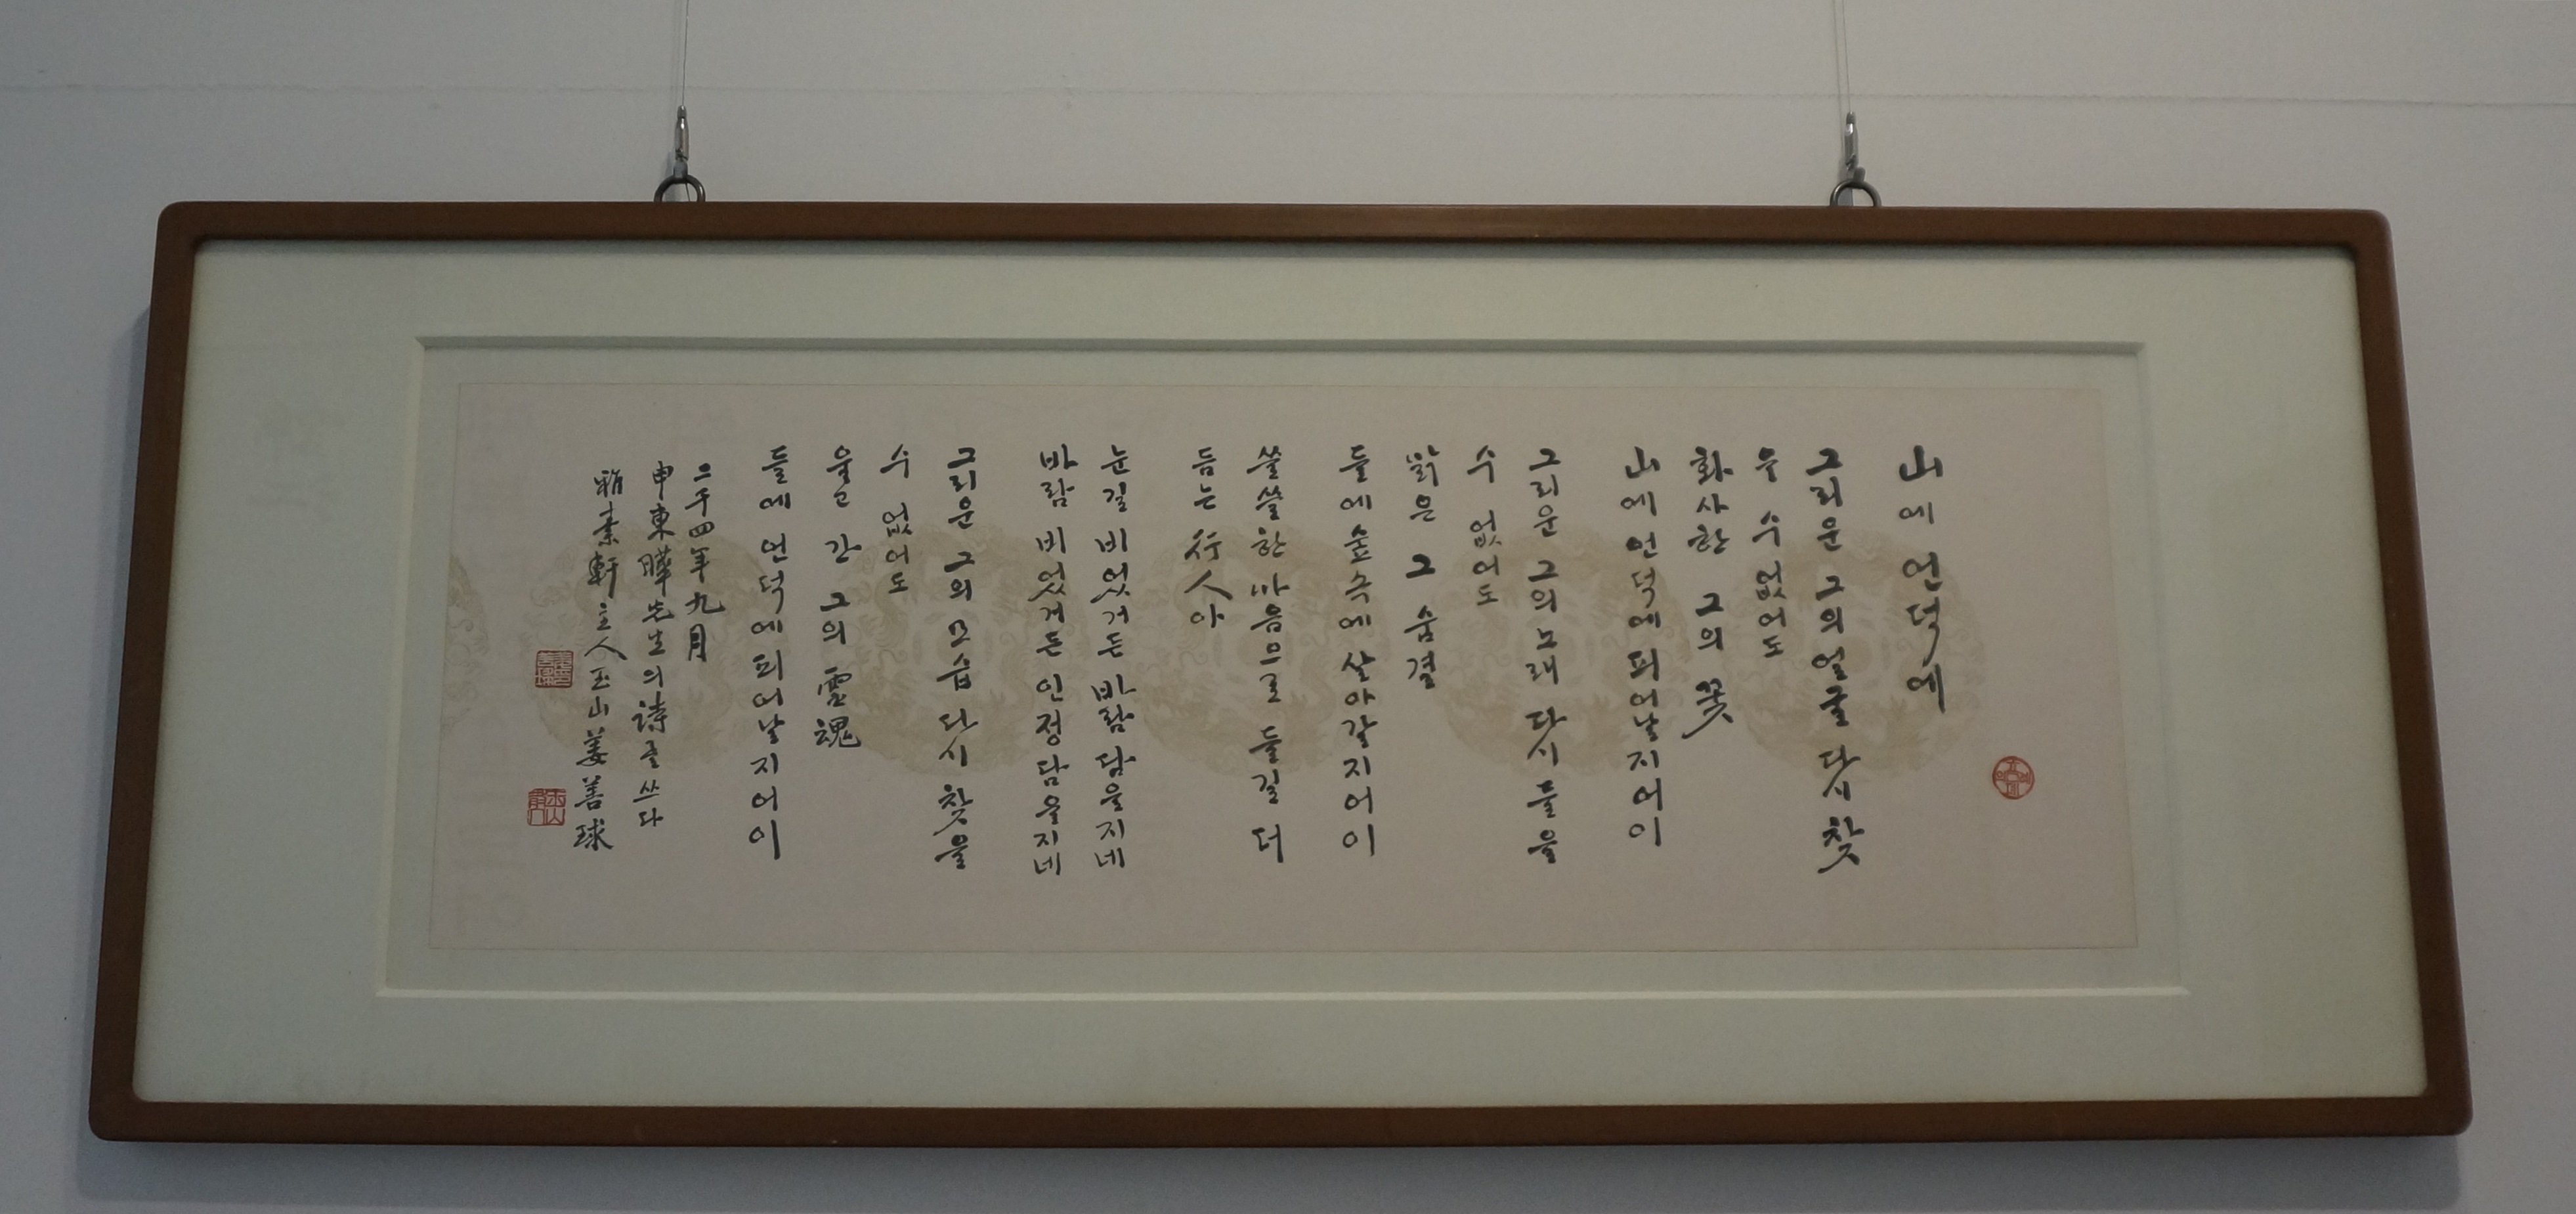 山에 언덕에
그리운 그의 얼굴 다시 찾
을 수 없어도
화사한 그의 꽃
山에 언덕에 피어날지어이
그리운 그의 노래 다시 들을
수 없어도
맑은 그 숨결
들에 숲속에 살아갈지어이
쓸쓸한 마음으로 들길 더
듬는 行人아
눈길 비었거든 바람 담을지네
바람 비었거든 인정 담을지네
그리운 그의 모습 다시 찾을
수 없어도
울고 간 그의 靈魂
들에 언덕에 피어날지어이
二千四年九月
申東曄先生의 詩를 쓰다
雅素軒主人 玉山 姜善球